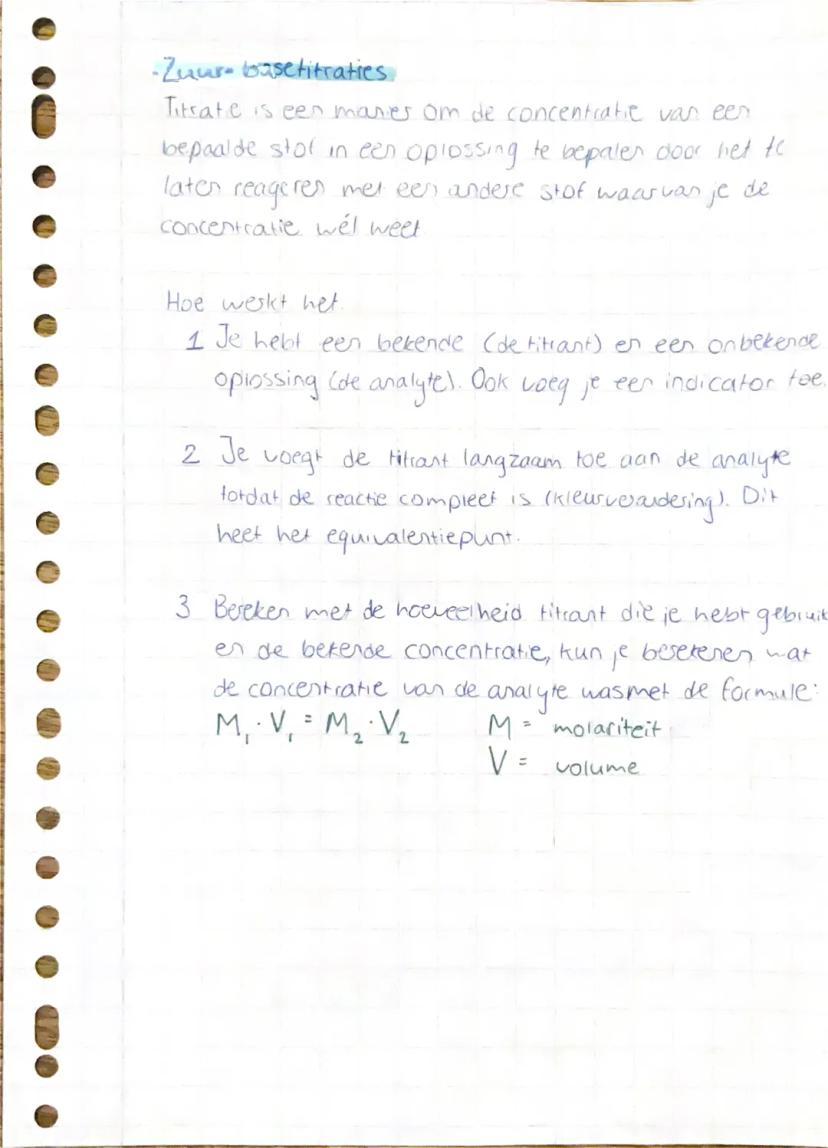 - Zuur-basetitraties
Titratie is een manier om de concentratie van een
bepaalde stof in een oplossing te bepalen door het te
laten reageren met een andere stof waarvan je de
concentratie wél weet
Hoe werkt het
1 Je hebt een bekende (de titrant) en een onbekende
oplossing (de analyte). Ook voeg je een indicator toe.
2 Je voegt de titrant langzaam toe aan de analyte
totdat de reactie compleet is (kleurverandering). Dit
heet het equivalentiepunt.
3 Bereken met de hoeveelheid titrant die je hebt gebruik
en de bekende concentratie, kun je berekenen wat
de concentratie van de analyte was met de formule:
M₁ · V₁ = M₂ · V₂ M = molariteit
V = volume